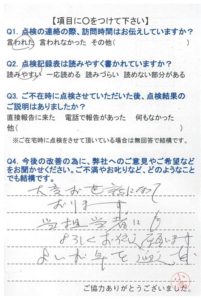 【項目に〇をつけて下さい】
Q1. 点検の連絡の際、訪問時間はお伝えしていますか？
言われた　言われなかった　その他(　　　　)
Q2. 点検記録表は読みやすく書かれていますか？
読みやすい　一応読める　読みづらい　読めない部分がある
Q3. ご不在時に点検させていただいた後、点検結果の
ご説明はありましたか？
直接報告に来た　電話で報告があった　何もなかった
他(　　　　)
※ご在宅時に点検をさせて頂いている場合は無回答で結構です。
Q4. 今後の改善の為に、弊社へのご意見やご希望など
をお聞かせください。ご不満やお叱りなど、どのようなこと
でも結構です。
大変お世話になって
おります。
担当者にも
よろしくお伝え願います
よいお年を
ご協力ありがとうございました。